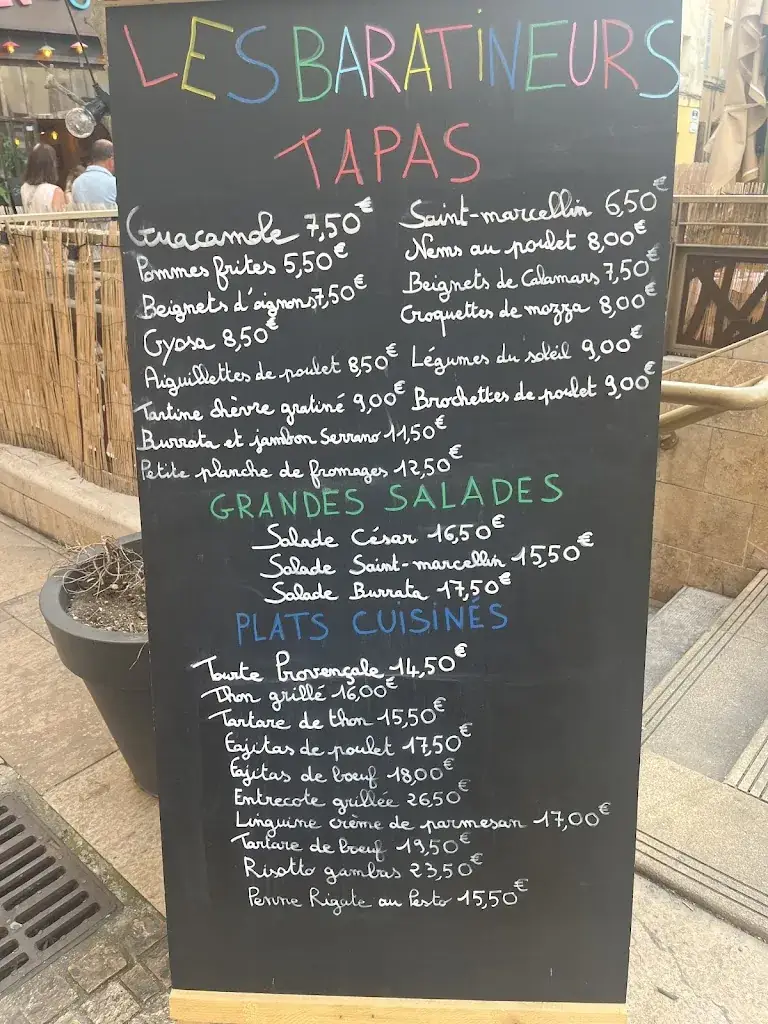 LES BARATINEURS
TAPAS
Guacamole 7,50€
Pommes frites 5,50€
Beignets d'oignons 7,50€
Gyosa 8,50€
Aiguillettes de poulet 8,50€
Tartine chèvre gratiné 9,00€
Burrata et jambon Serrano 11,50€
Petite planche de fromages 12,50€
Saint-marcellin 6,50€
Nems au poulet 8,00€
Beignets de Calamars 7,50€
Croquettes de mozza 8,00€
Légumes du soleil 9,00€
Brochettes de poulet 9,00€
GRANDES SALADES
Salade César 16,50€
Salade Saint-marcellin 15,50€
Salade Burrata 17,50€
PLATS CUISINÉS
Tourte Provençale 14,50€
Thon grillé 16,00€
Tartare de thon 15,50€
Fajitas de poulet 17,50€
Fajitas de bœuf 18,00€
Entrecote grillée 26,50€
Linguine crème de parmesan 17,00€
Tartare de bœuf 19,50€
Risotto gambas 23,50€
Penne Rigate au Pesto 15,50€